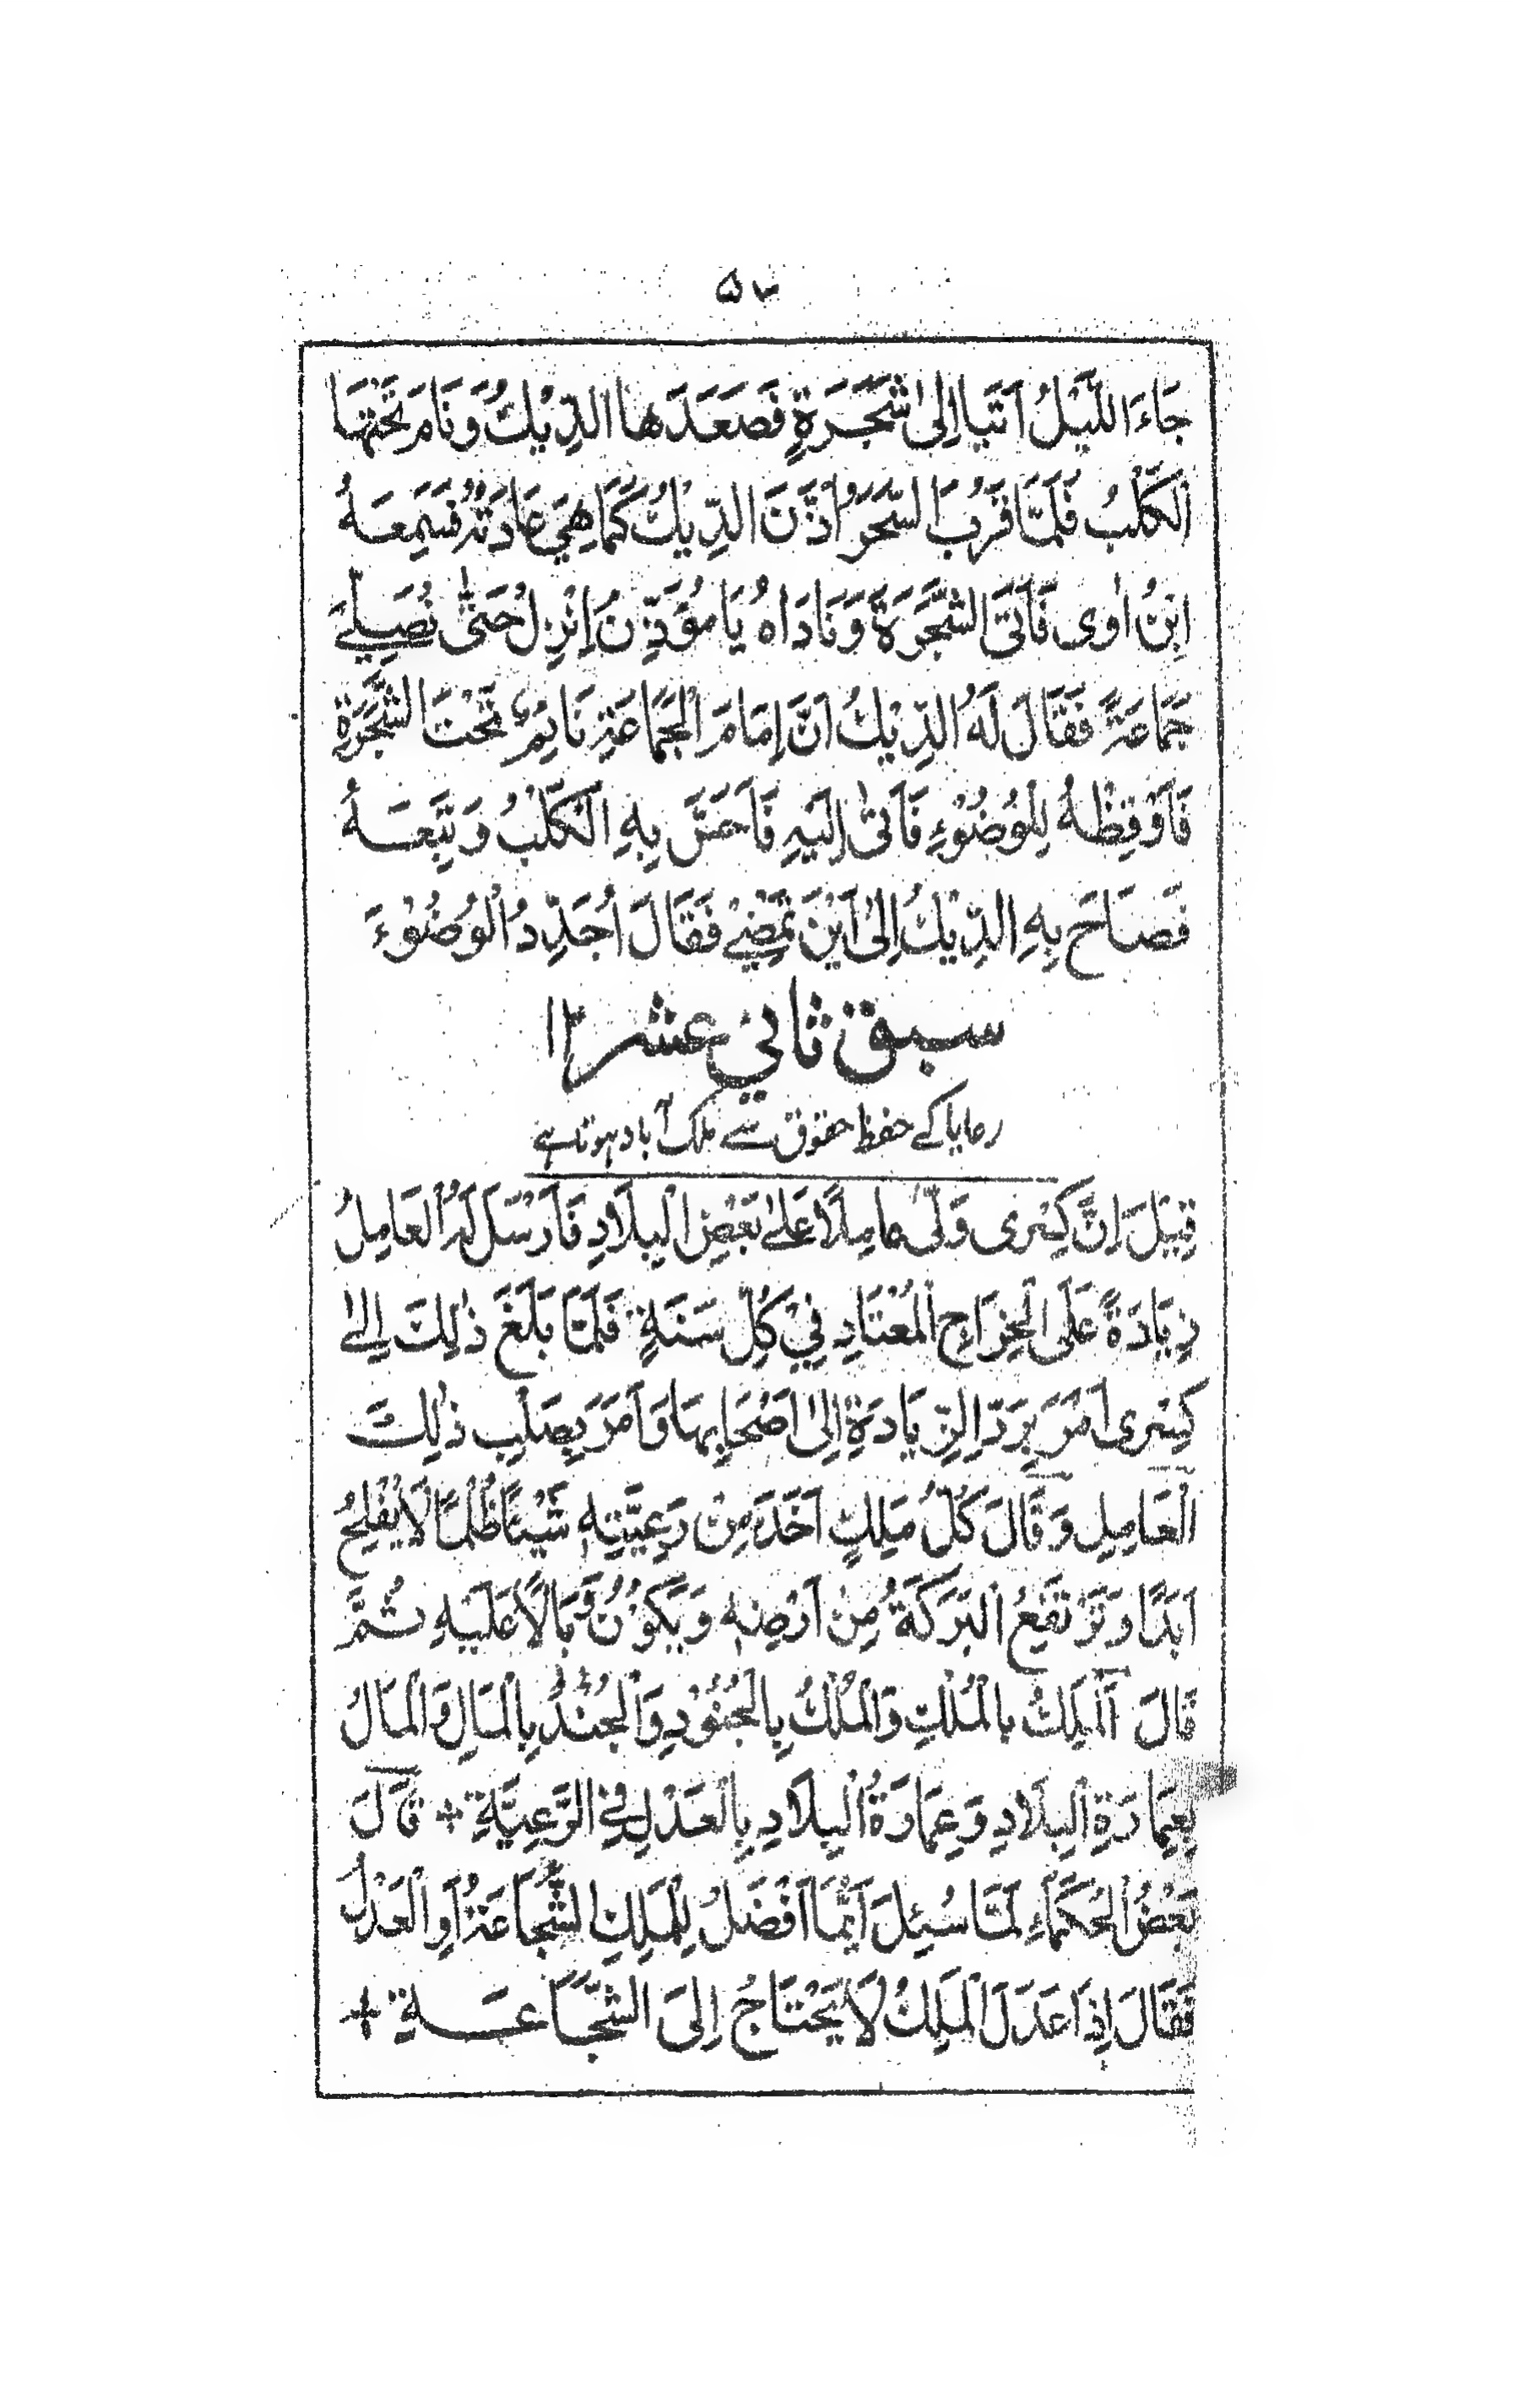 جَاءَ اللَّيْلُ اَتَيَا اِلىٰ شَجَرَةٍ فَصَعَدَهَا الدِّيْكُ وَنَامَ تَحْتَهَا
الْكَلْبُ فَلَمَّا قَرُبَ السَّحَرُ اَذَّنَ الدِّيْكُ كَمَا هِيَ عَادَتُهُ فَسَمِعَهُ
اِبْنُ اٰوى فَاَتَى الشَّجَرَةَ وَنَادَاهُ يَا مُؤَذِّنُ اِنْزِلْ حَتّٰى نُصَلِّيَ
جَمَاعَةً فَقَالَ لَهُ الدِّيْكُ اَنَّ اِمَامَ الْجَمَاعَةِ نَائِمٌ تَحْتَ الشَّجَرَةِ
فَاَوْقِظْهُ لِلْوُضُوْءِ فَاَتىٰ اِلَيْهِ فَاَحَسَّ بِهِ الْكَلْبُ وَتَبِعَهُ
فَصَاحَ بِهِ الدِّيْكُ اِلىٰ اَيْنَ تَمْضِيْ فَقَالَ اُجَدِّدُ الْوُضُوْءَ
سبق ثاني عشر ١٢
رعایا کے حفظ حقوق سے ملک آباد ہوتا ہے
قِيْلَ اِنَّ كِسْرى وَلّىٰ عامِلًا عَلىٰ بَعْضِ الْبِلَادِ فَاَرْسَلَ لَهُ الْعَامِلُ
زِيَادَةً عَلَى الْخِرَاجِ الْمُعْتَادِ فِيْ كُلِّ سَنَةٍ فَلَمَّا بَلَغَ ذٰلِكَ اِلىٰ
كِسْرى اَمَرَ بِرَدِّ الزِّيَادَةِ اِلىٰ اَصْحَابِهَا وَاَمَرَ بِصَلْبِ ذٰلِكَ
الْعَامِلِ وَقَالَ كُلُّ مَلِكٍ اَخَذَ مِنْ رَعِيَّتِهٖ شَيْئًا ظُلْمًا لَا يُفْلِحُ
اَبَدًا وَتَرْتَفِعُ الْبَرَكَةُ مِنْ اَرْضِهٖ وَيَكُوْنُ وَبَالًا عَلَيْهِ ثُمَّ
قَالَ اَلْمَلِكُ بِالْمُلْكِ وَالْمُلْكُ بِالْجُنُوْدِ وَالْجُنْدُ بِالْمَالِ وَالْمَالُ
بِعِمَارَةِ الْبِلَادِ وَعِمَارَةُ الْبِلَادِ بِالْعَدْلِ فِي الرَّعِيَّةِ + قَالَ
بَعْضُ الْحُكَمَاءِ لَمَّا سُئِلَ اَيُّمَا اَفْضَلُ لِلْمَلِكِ الشُّجَاعَةُ اَوِ الْعَدْلُ
فَقَالَ اِذَا عَدَلَ الْمَلِكُ لَا يَحْتَاجُ اِلَى الشَّجَاعَةِ +